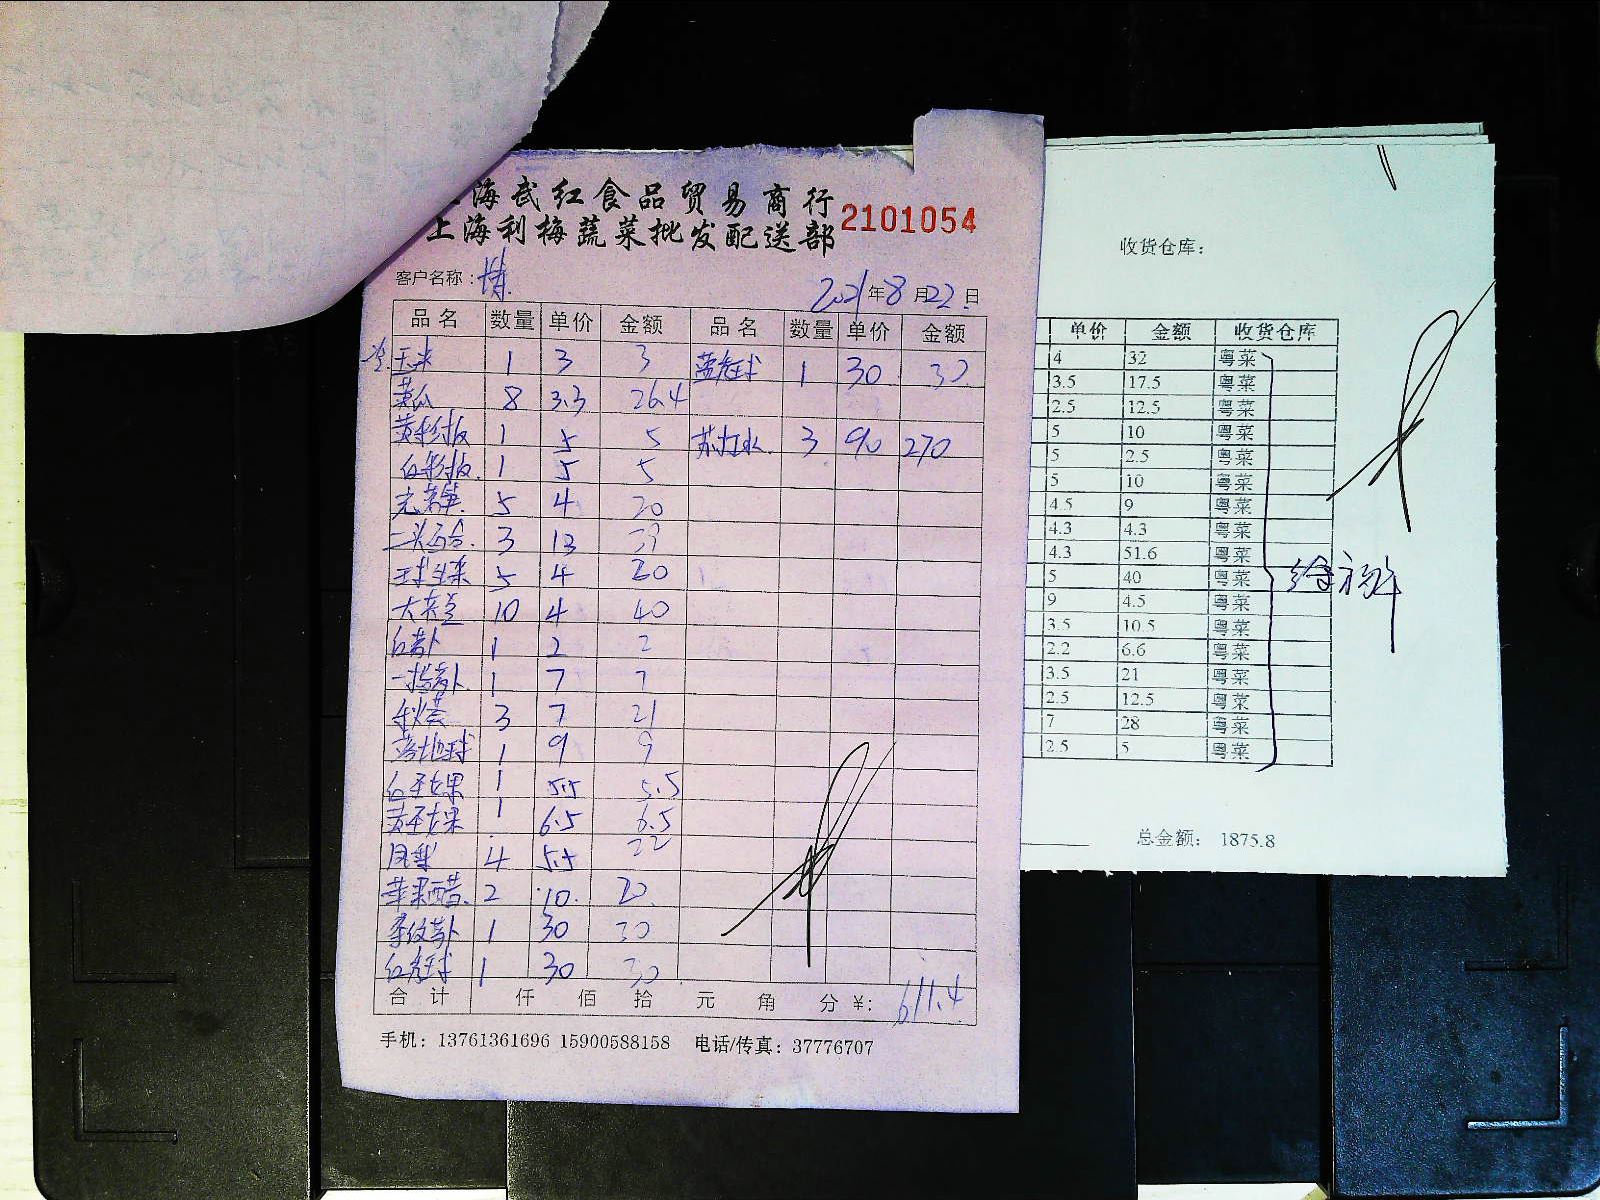 上海武红食品贸易商行
上海利梅蔬菜批发配送部 2101054
客户名称： 2021年8月22日
品名 数量 单价 金额 品名 数量 单价 金额
玉米 1 3 3 1 30 30
黄瓜 8 3.3 26.4
1 5 5 苏打水 3 90 270
1 5 5
5 4 20
3 13 39
球生菜 5 4 20
10 4 40
红萝卜 1 2 2
一指萝卜 1 7 7
秋葵 3 7 21
1 9 9
1 5.5 5.5
1 6.5 6.5
凤梨 4 5.5 22
苹果醋 2 10 20
萝卜 1 30 30
1 30 30
合计 仟 佰 拾 元 角 分 ¥: 611.4
手机：13761361696 15900588158 电话/传真：37776707
收货仓库：
单价 金额 收货仓库
4 32 粤菜
3.5 17.5 粤菜
2.5 12.5 粤菜
5 10 粤菜
5 2.5 粤菜
5 10 粤菜
4.5 9 粤菜
4.3 4.3 粤菜
4.3 51.6 粤菜
5 40 粤菜
9 4.5 粤菜
3.5 10.5 粤菜
2.2 6.6 粤菜
3.5 21 粤菜
2.5 12.5 粤菜
7 28 粤菜
2.5 5 粤菜
总金额： 1875.8